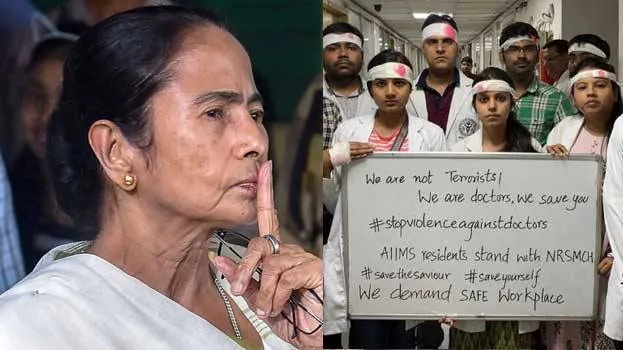 We are not Terrorists!
We are doctors, we save you
#stopviolenceagainstdoctors
AIIMS residents stand with NRSMCH
#savethesaviour #saveyourself
We demand SAFE Workplace